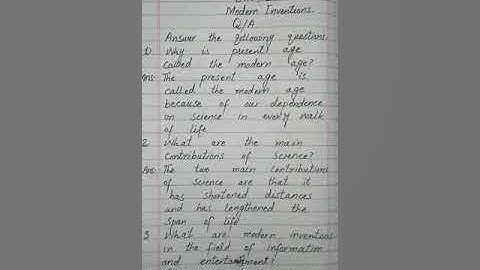 Modern Inventions
Q/A
Answer the following questions.
1) Why is present age
called the modern age?
Ans: The present age is
called the modern age
because of our dependence
on science in every walk
of life
2. What are the main
contributions of Science?
Ans: The two main contributions
of science are that it
has shortened distances
and has lengthened the
span of life
3 What are modern inventions
in the field of information
and entertainment?